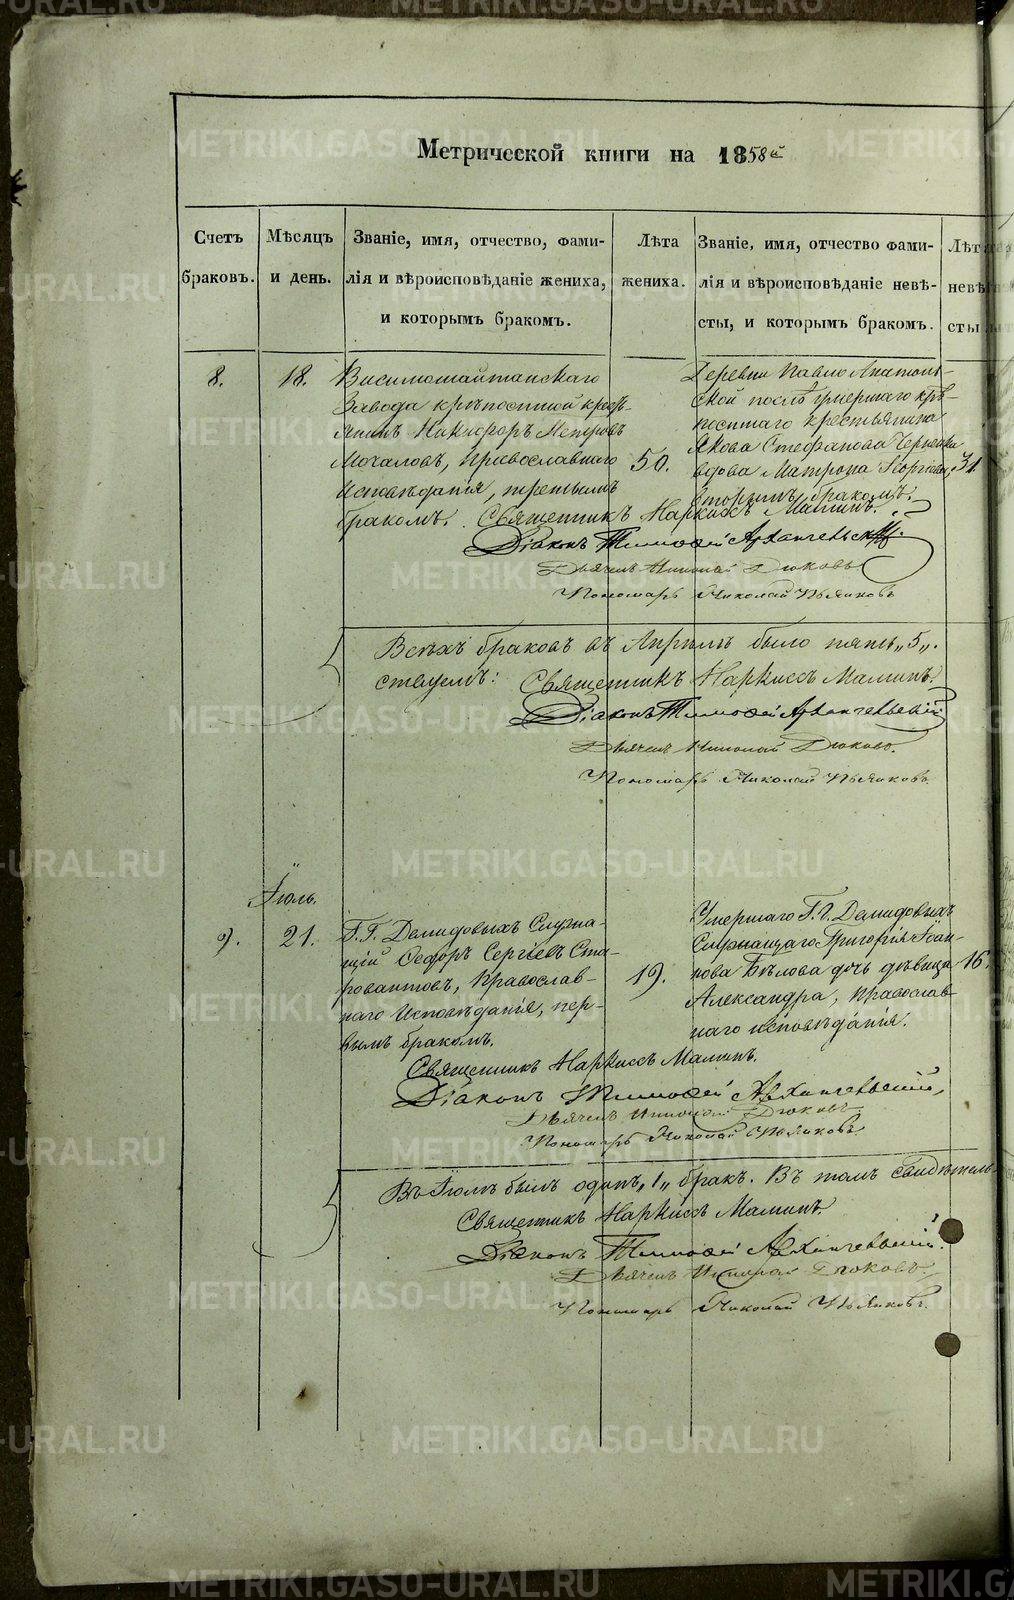 Метрической книги на 1858й
Счетъ браковъ.
Мѣсяцъ и день.
Званіе, имя, отчество, фами-
лія и вѣроисповѣданіе жениха,
и которымъ бракомъ.
Лѣта жениха.
Званіе, имя, отчество фами-
лія и вѣроисповѣданіе невѣ-
сты, и которымъ бракомъ.
Лѣта
невѣ
сты
8.
18.
Висимошайтанскаго
Завода крѣпостной кресть-
янинъ Никифоръ Петровъ
Мочаловъ, Православнаго
Исповѣданія, третьимъ
бракомъ.
50.
Деревни Павло Анатоль-
ской послѣ умершаго крѣ-
постнаго крестьянина
Якова Стефанова
вдова Матрона Георгіева,
вторымъ бракомъ.
31.
Священникъ Наркиссъ Маминъ.
Діаконъ Тимофей Архангельскій.
Дьячекъ Николай Дюковъ
Пономарь Николай Пьянковъ
Всѣхъ браковъ въ Апрѣлѣ было пять „5„.
Священникъ Наркиссъ Маминъ.
Діаконъ Тимофей Архангельскій
Дьячекъ Николай Дюковъ.
Пономарь Николай Пьянковъ.
Іюль.
9.
21.
Г.Г. Демидовыхъ Служа-
щій Ѳедоръ Сергіевъ Ста-
ровантовъ, Православ-
наго Исповѣданія, пер-
вымъ бракомъ.
19.
Умершаго Г.Г. Демидовыхъ
Служащаго Григорія Іоан-
нова Бѣлова дочь дѣвица
Александра, Православ-
наго исповѣданія.
16.
Священникъ Наркиссъ Маминъ.
Діаконъ Тимофей Архангельскій,
Дьячекъ Николай Дюковъ
Пономарь Николай Пьянковъ
Въ Іюлѣ былъ одинъ „1„ бракъ. Въ томъ свидѣтель-
Священникъ Наркиссъ Маминъ.
Діаконъ Тимофей Архангельскій.
Дьячекъ Николай Дюковъ,
Пономарь Николай Пьянковъ.
METRIKI.GASO-URAL.RU